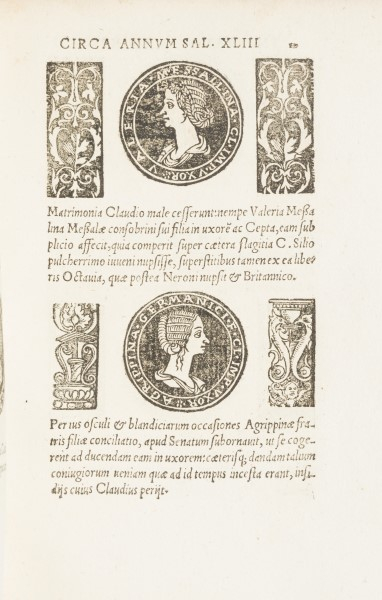 CIRCA ANNVM SAL. XLIII
VALERIA MESSALINA CL. IMP. VXOR
Matrimonia Claudio male cesserunt: nempe Valeria Meßa
lina Meßalæ consobrini sui filia in uxorē ac cepta, eam sup
plicio affecit, quia comperit super cætera flagitia C. Silio
pulcherrimo iuueni nupsisse, superstitibus tamen ex ea libe
ris Octauia, quæ postea Neroni nupsit & Britannico.
AGRIPPINA GERMANICI F. CL. IMP. VXOR
Per ius osculi & blandiciarum occasiones Agrippinæ fra-
tris filiæ conciliatio, apud Senatum subornauit, ut se coge-
rent ad ducendam eam in uxorem: cæterisq; dandam talium
coniugiorum ueniam quæ ad id tempus incesta erant, insi-
dijs cuius Claudius perijt.